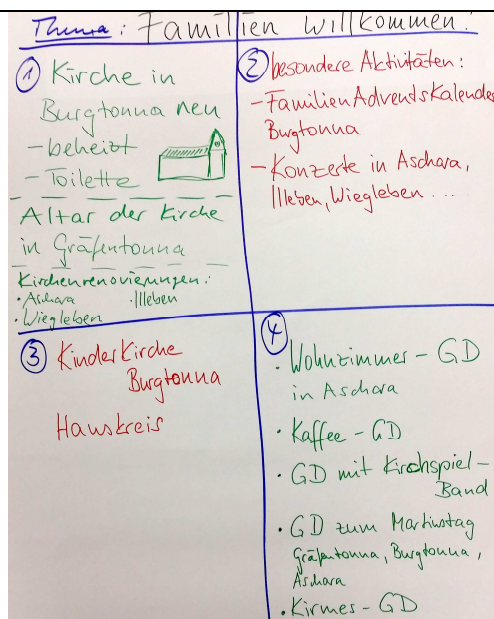 Thema: Familien willkommen!
① Kirche in
Burgtonna neu
- beheizt
- Toilette
Altar der Kirche
in Gräfentonna
Kirchenrenovierungen:
• Aschara • Illeben
• Wiegleben
② besondere Aktivitäten:
- FamilienAdventsKalender
Burgtonna
- Konzerte in Aschara,
Illeben, Wiegleben ...
③ KinderKirche
Burgtonna
Hauskreis
④
• Wohnzimmer - GD
in Aschara
• Kaffee - GD
• GD mit Kirchspiel-
Band
• GD zum Martinstag
Gräfentonna, Burgtonna,
Aschara
• Kirmes - GD